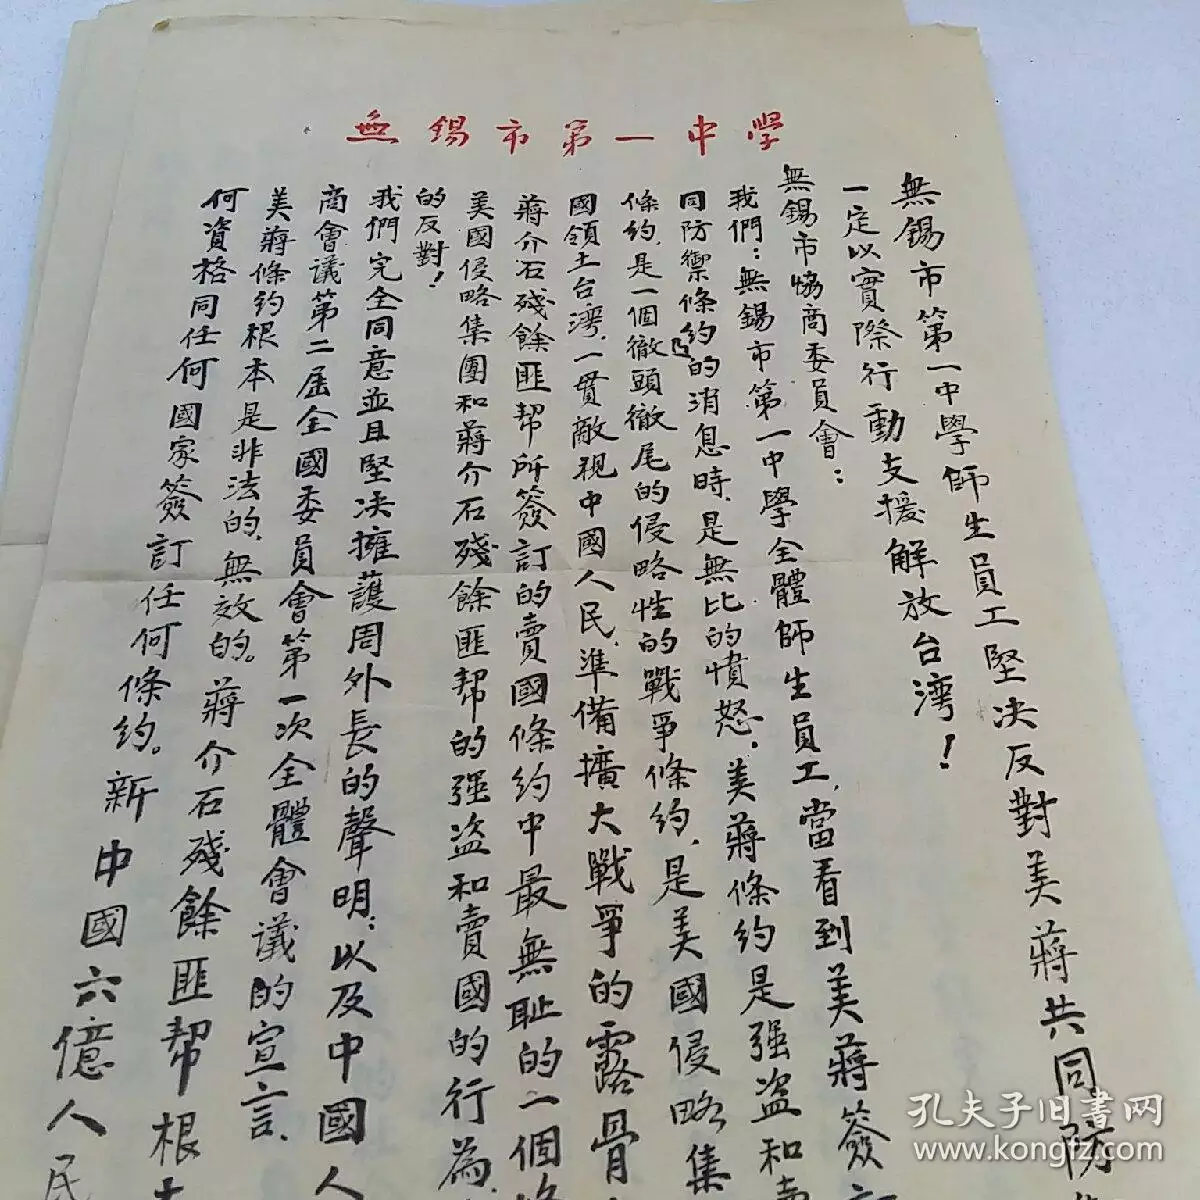 無錫市第一中学
無錫市第一中學師生員工堅决反對美蔣共同防
一定以實際行動支援解放台灣！
無錫市協商委員會：
我們：無錫市第一中學全體師生員工，當看到美蔣簽
同防禦條約的消息時，是無比的憤怒。美蔣條約是强盗和
條約，是一個徹頭徹尾的侵略性的戰爭條約，是美國侵略集
國領土台灣，一貫敵視中國人民，準备擴大戰爭的露骨
蔣介石殘餘匪帮所簽訂的賣國條約中最無耻的一個
美國侵略集團和蔣介石殘餘匪帮的强盗和賣國的行為，
的反對！
我們完全同意並且堅决擁護周外長的聲明，以及中國人
商會議第二届全國委員會第一次全體會议的宣言、
美蔣條约根本是非法的，無效的。蔣介石殘餘匪帮根
何資格同任何國家簽訂任何條约。新中國六億人民
孔夫子旧書网
www.kongfz.com